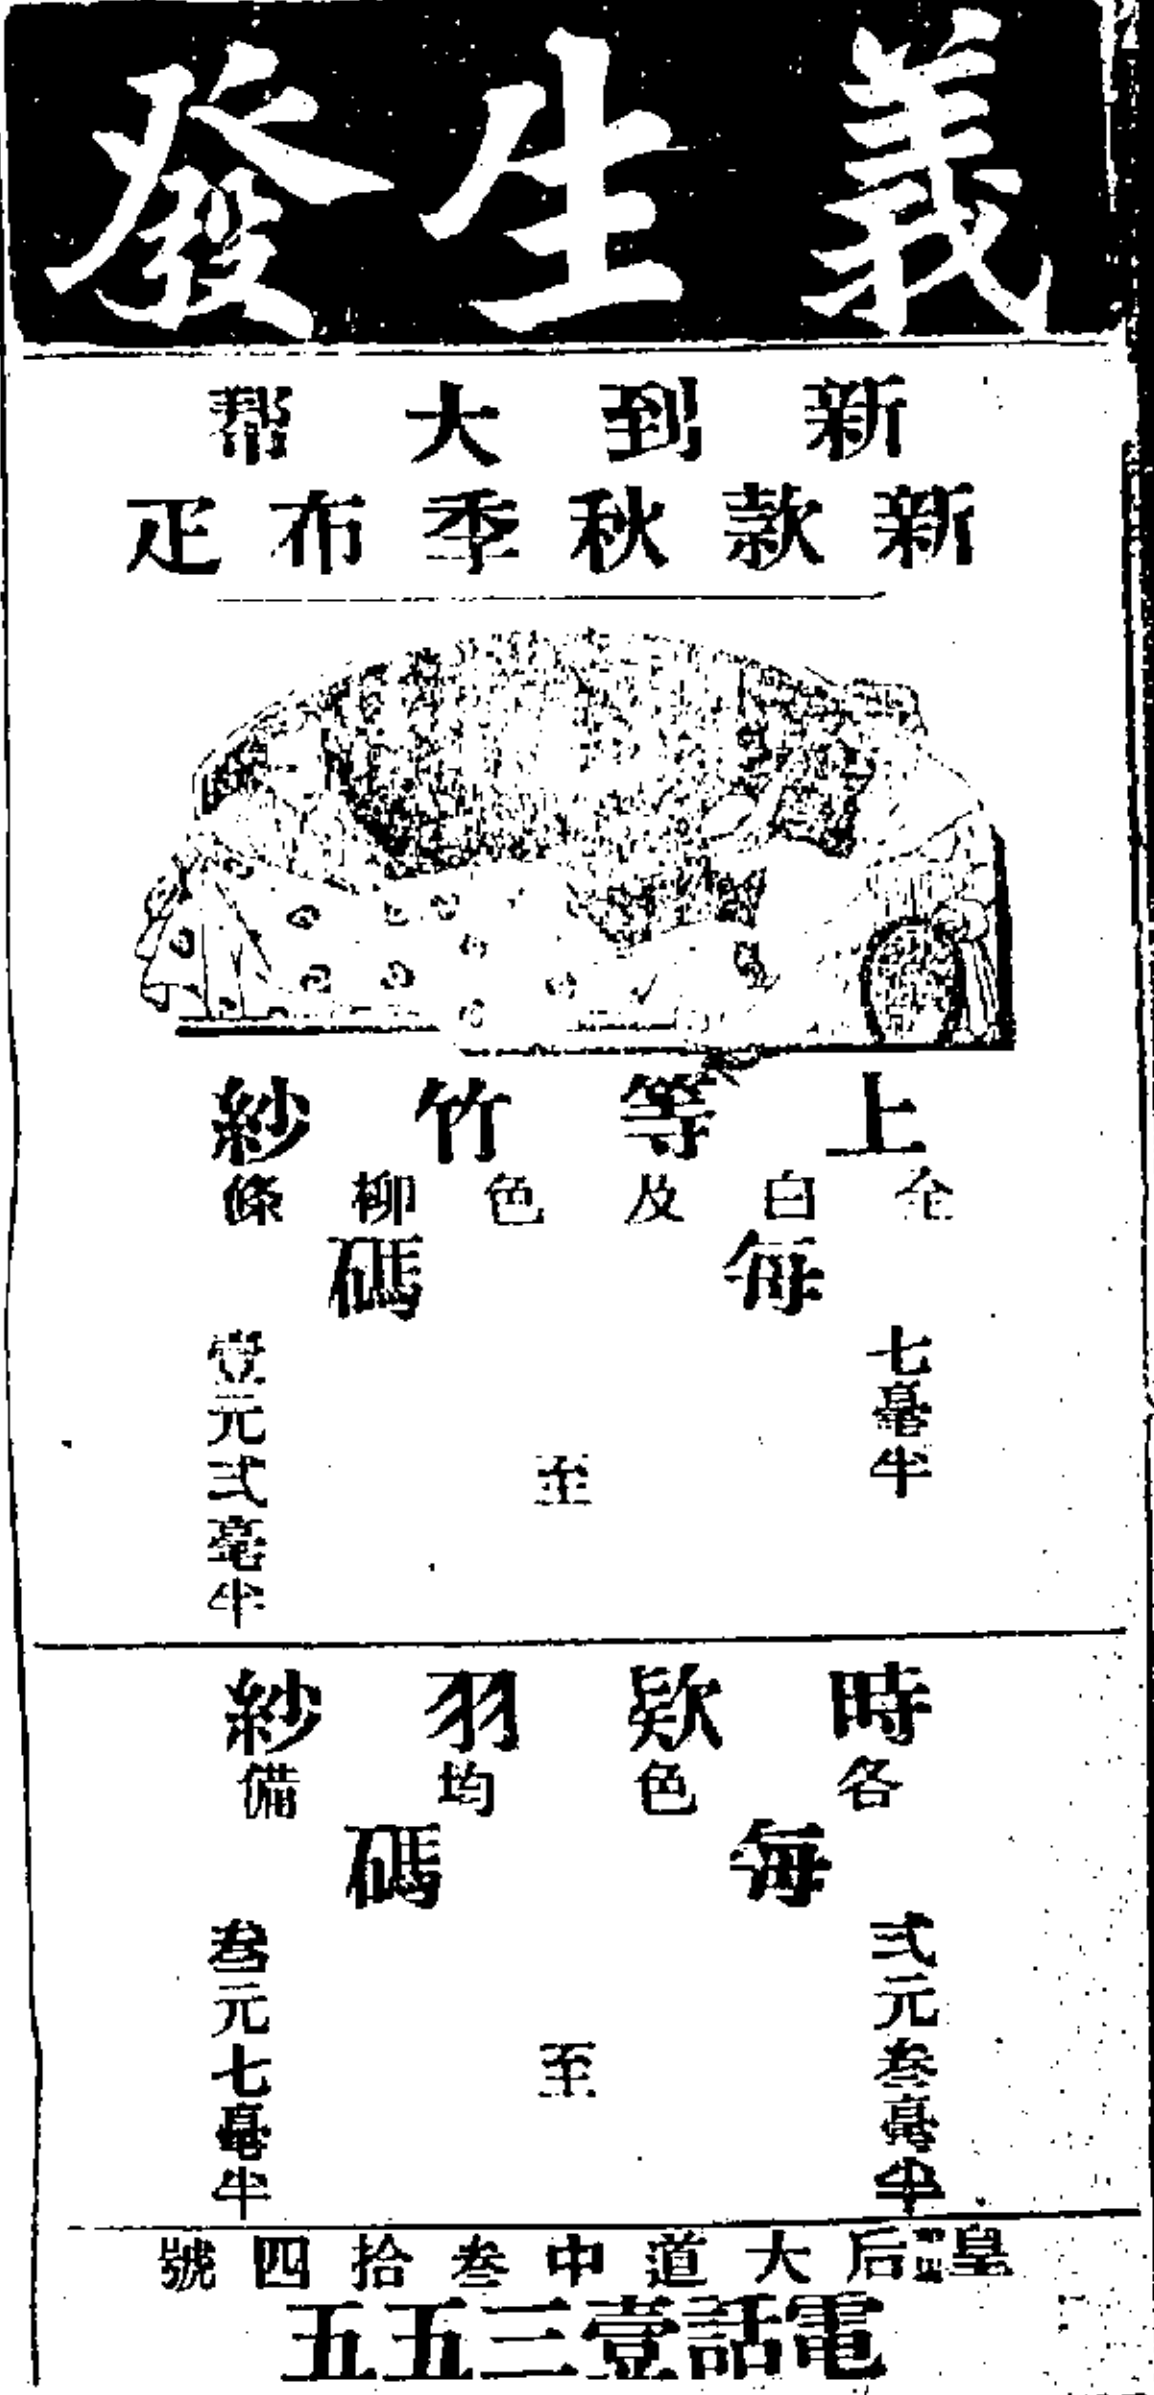 義生發
新到大幇
新款秋季布疋
上等竹紗
全白及色柳條
每碼
七毫半
至
壹元弍毫半
時欵羽紗
各色均備
每碼
弍元叁毫半
至
叁元七毫半
皇后大道中叁拾四號
電話壹三五五